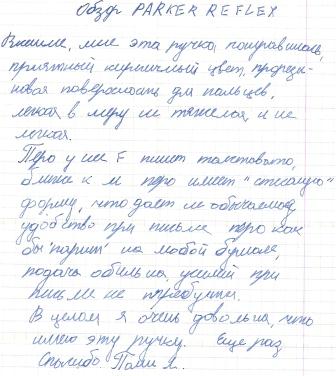 Обзор PARKER REFLEX
Внешне, мне эта ручка понравилась,
приятный кирпичный цвет, прорези-
новая поверхность для пальцев,
легкая в меру не тяжелая, и не
легкая.
Перо у нее F пишет толстовато,
ближе к м перо имеет "стесаную"
форму, что дает не обычаемое
удобство при письме перо как
бы "парит" на любой бумаге,
подача обильна, усилий при
письме не требует.
В целом я очень довольна, что
имею эту ручку. Еще раз
Спасибо